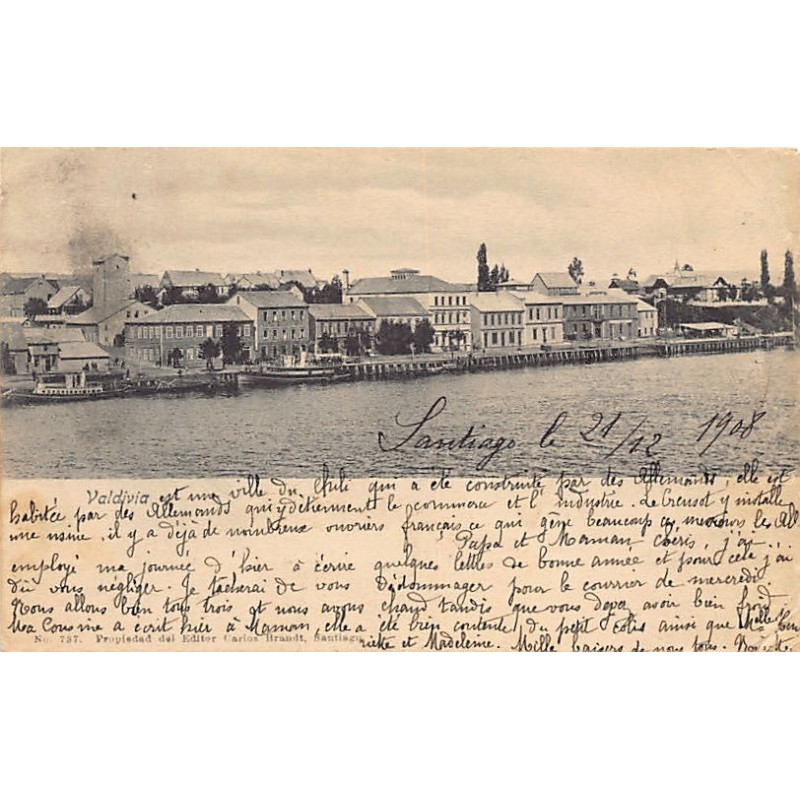 Santiago le 21/12 1908
Valdivia est une ville du Chili qui a été construite par des Allemands, elle est
habitée par des Allemands qui y détiennent le commerce et l'industrie. Le Creusot y installe
une usine, il y a déjà de nombreux ouvriers français ce qui gêne beaucoup ces messieurs les All.
Papa et Maman chéris, j'ai
employé ma journée d'hier à écrire quelques lettres de bonne année et pour cela j'ai
dû vous négliger. Je tâcherai de vous dédommager pour le courrier de mercredi.
Nous allons bien tous trois et nous avons chaud tandis que vous devez avoir bien froid
Ma Cousine a écrit hier à Maman, elle a été bien contente du petit colis ainsi que Melle
No. 737. Propiedad del Editor Carlos Brandt, Santiago
et Madeleine. Mille baisers de nous tous.